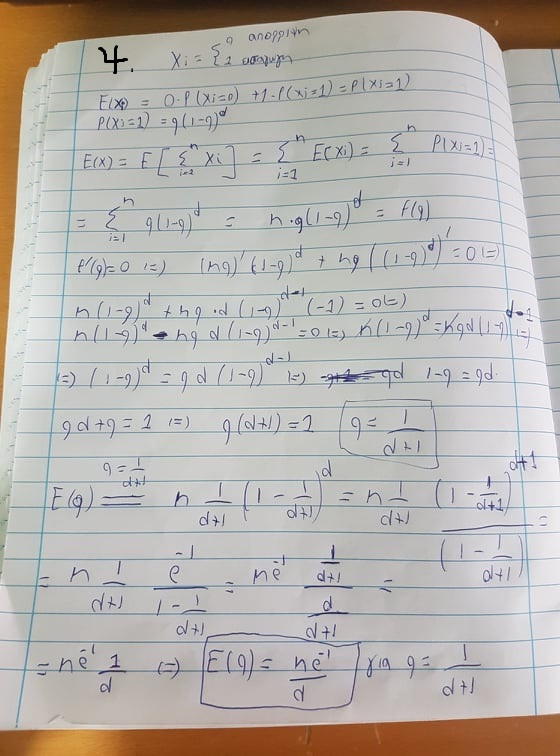 4. Xi = { 0 απορρίψη
1
E(Xi) = 0·P(Xi=0) + 1·P(Xi=1) = P(Xi=1)
P(Xi=1) = q(1-q)^d
E(X) = E[Σ_{i=1}^n Xi] = Σ_{i=1}^n E(Xi) = Σ_{i=1}^n P(Xi=1) =
= Σ_{i=1}^n q(1-q)^d = n·q(1-q)^d = f(q)
f'(q)=0 (=) (nq)'(1-q)^d + nq((1-q)^d)' = 0 (=)
n(1-q)^d + nq·d(1-q)^{d-1}(-1) = 0 (=)
n(1-q)^d - nqd(1-q)^{d-1} = 0 (=) n(1-q)^d = nqd(1-q)^{d-1} (=)
(=) (1-q)^d = qd(1-q)^{d-1} (=) 1-q = qd
qd+q = 1 (=) q(d+1) = 1 q = 1/(d+1)
E(q) =^{q = 1/(d+1)} n 1/(d+1) (1 - 1/(d+1))^d = n 1/(d+1) (1 - 1/(d+1))^{d+1} / (1 - 1/(d+1)) =
= n 1/(d+1) e^{-1} / (1 - 1/(d+1)) = ne^{-1} (1/(d+1)) / (d/(d+1)) =
= ne^{-1} 1/d (=) E(q) = ne^{-1}/d για q = 1/(d+1)